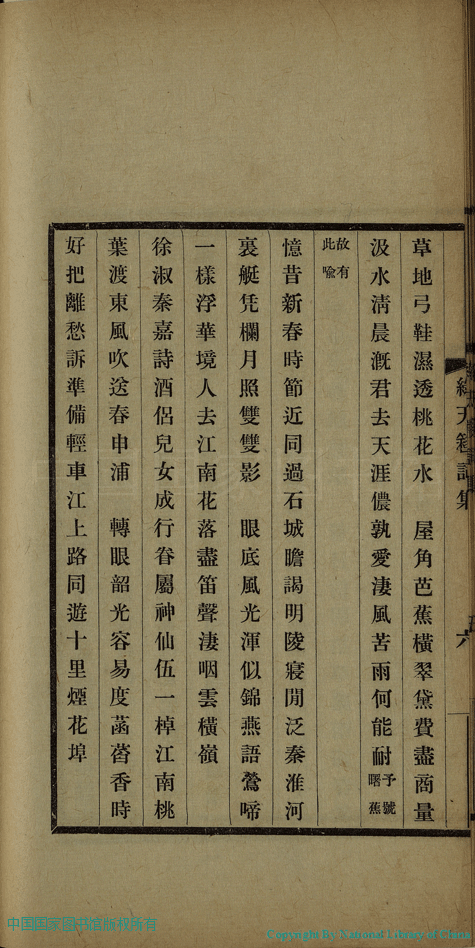 草地弓鞋濕透桃花水　屋角芭蕉橫翠黛費盡商量
汲水淸晨漑君去天涯儂孰愛淒風苦雨何能耐予號曙蕉
故有此喩
憶昔新春時節近同過石城瞻謁明陵寢閒泛秦淮河
裏艇凭欄月照雙雙影　眼底風光渾似錦燕語鶯啼
一樣浮華境人去江南花落盡笛聲淒咽雲橫嶺
徐淑秦嘉詩酒侶兒女成行眷屬神仙伍一棹江南桃
葉渡東風吹送春申浦　轉眼韶光容易度菡萏香時
好把離愁訴準備輕車江上路同遊十里煙花埠
六
中国国家图书馆版权所有
Copyright By National Library of China